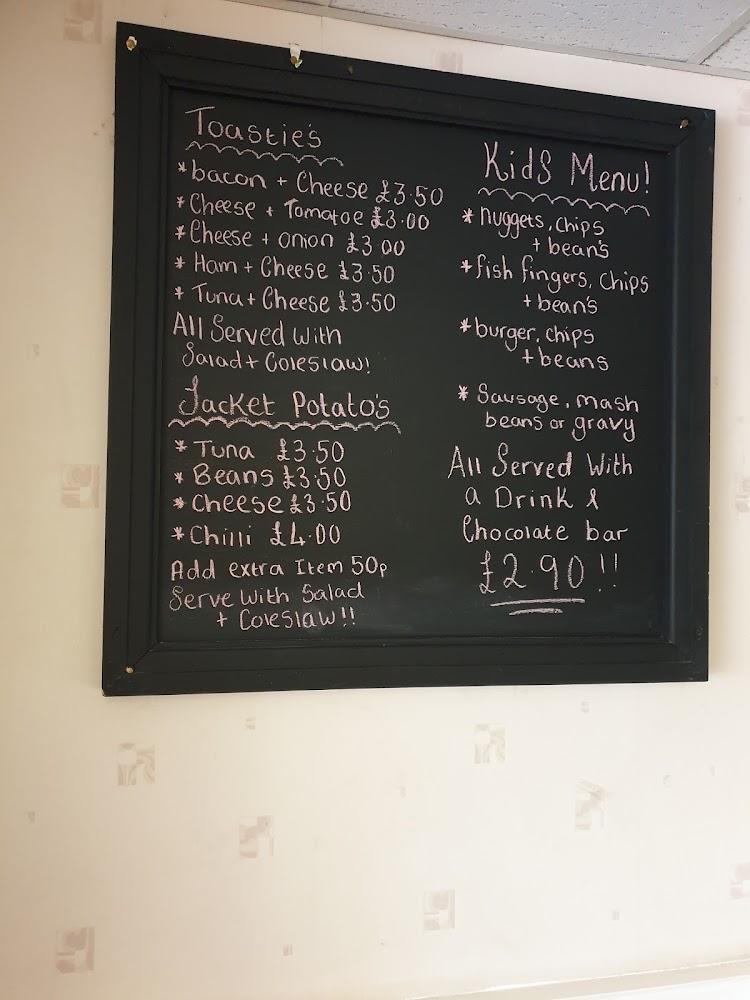 Toastie's
*bacon + Cheese £3.50
*Cheese + Tomatoe £3.00
*Cheese + onion £3.00
*Ham + Cheese £3.50
*Tuna + Cheese £3.50
All Served with
Salad + Coleslaw!
Jacket Potato's
*Tuna £3.50
*Beans £3.50
*Cheese £3.50
*Chilli £4.00
Add extra Item 50p
Serve with Salad
+ Coleslaw!!
Kids Menu!
*nuggets, chips
+ bean's
*fish fingers, chips
+ bean's
*burger, chips
+ beans
*Sausage, mash
beans or gravy
All Served With
a Drink &
Chocolate bar
£2.90!!